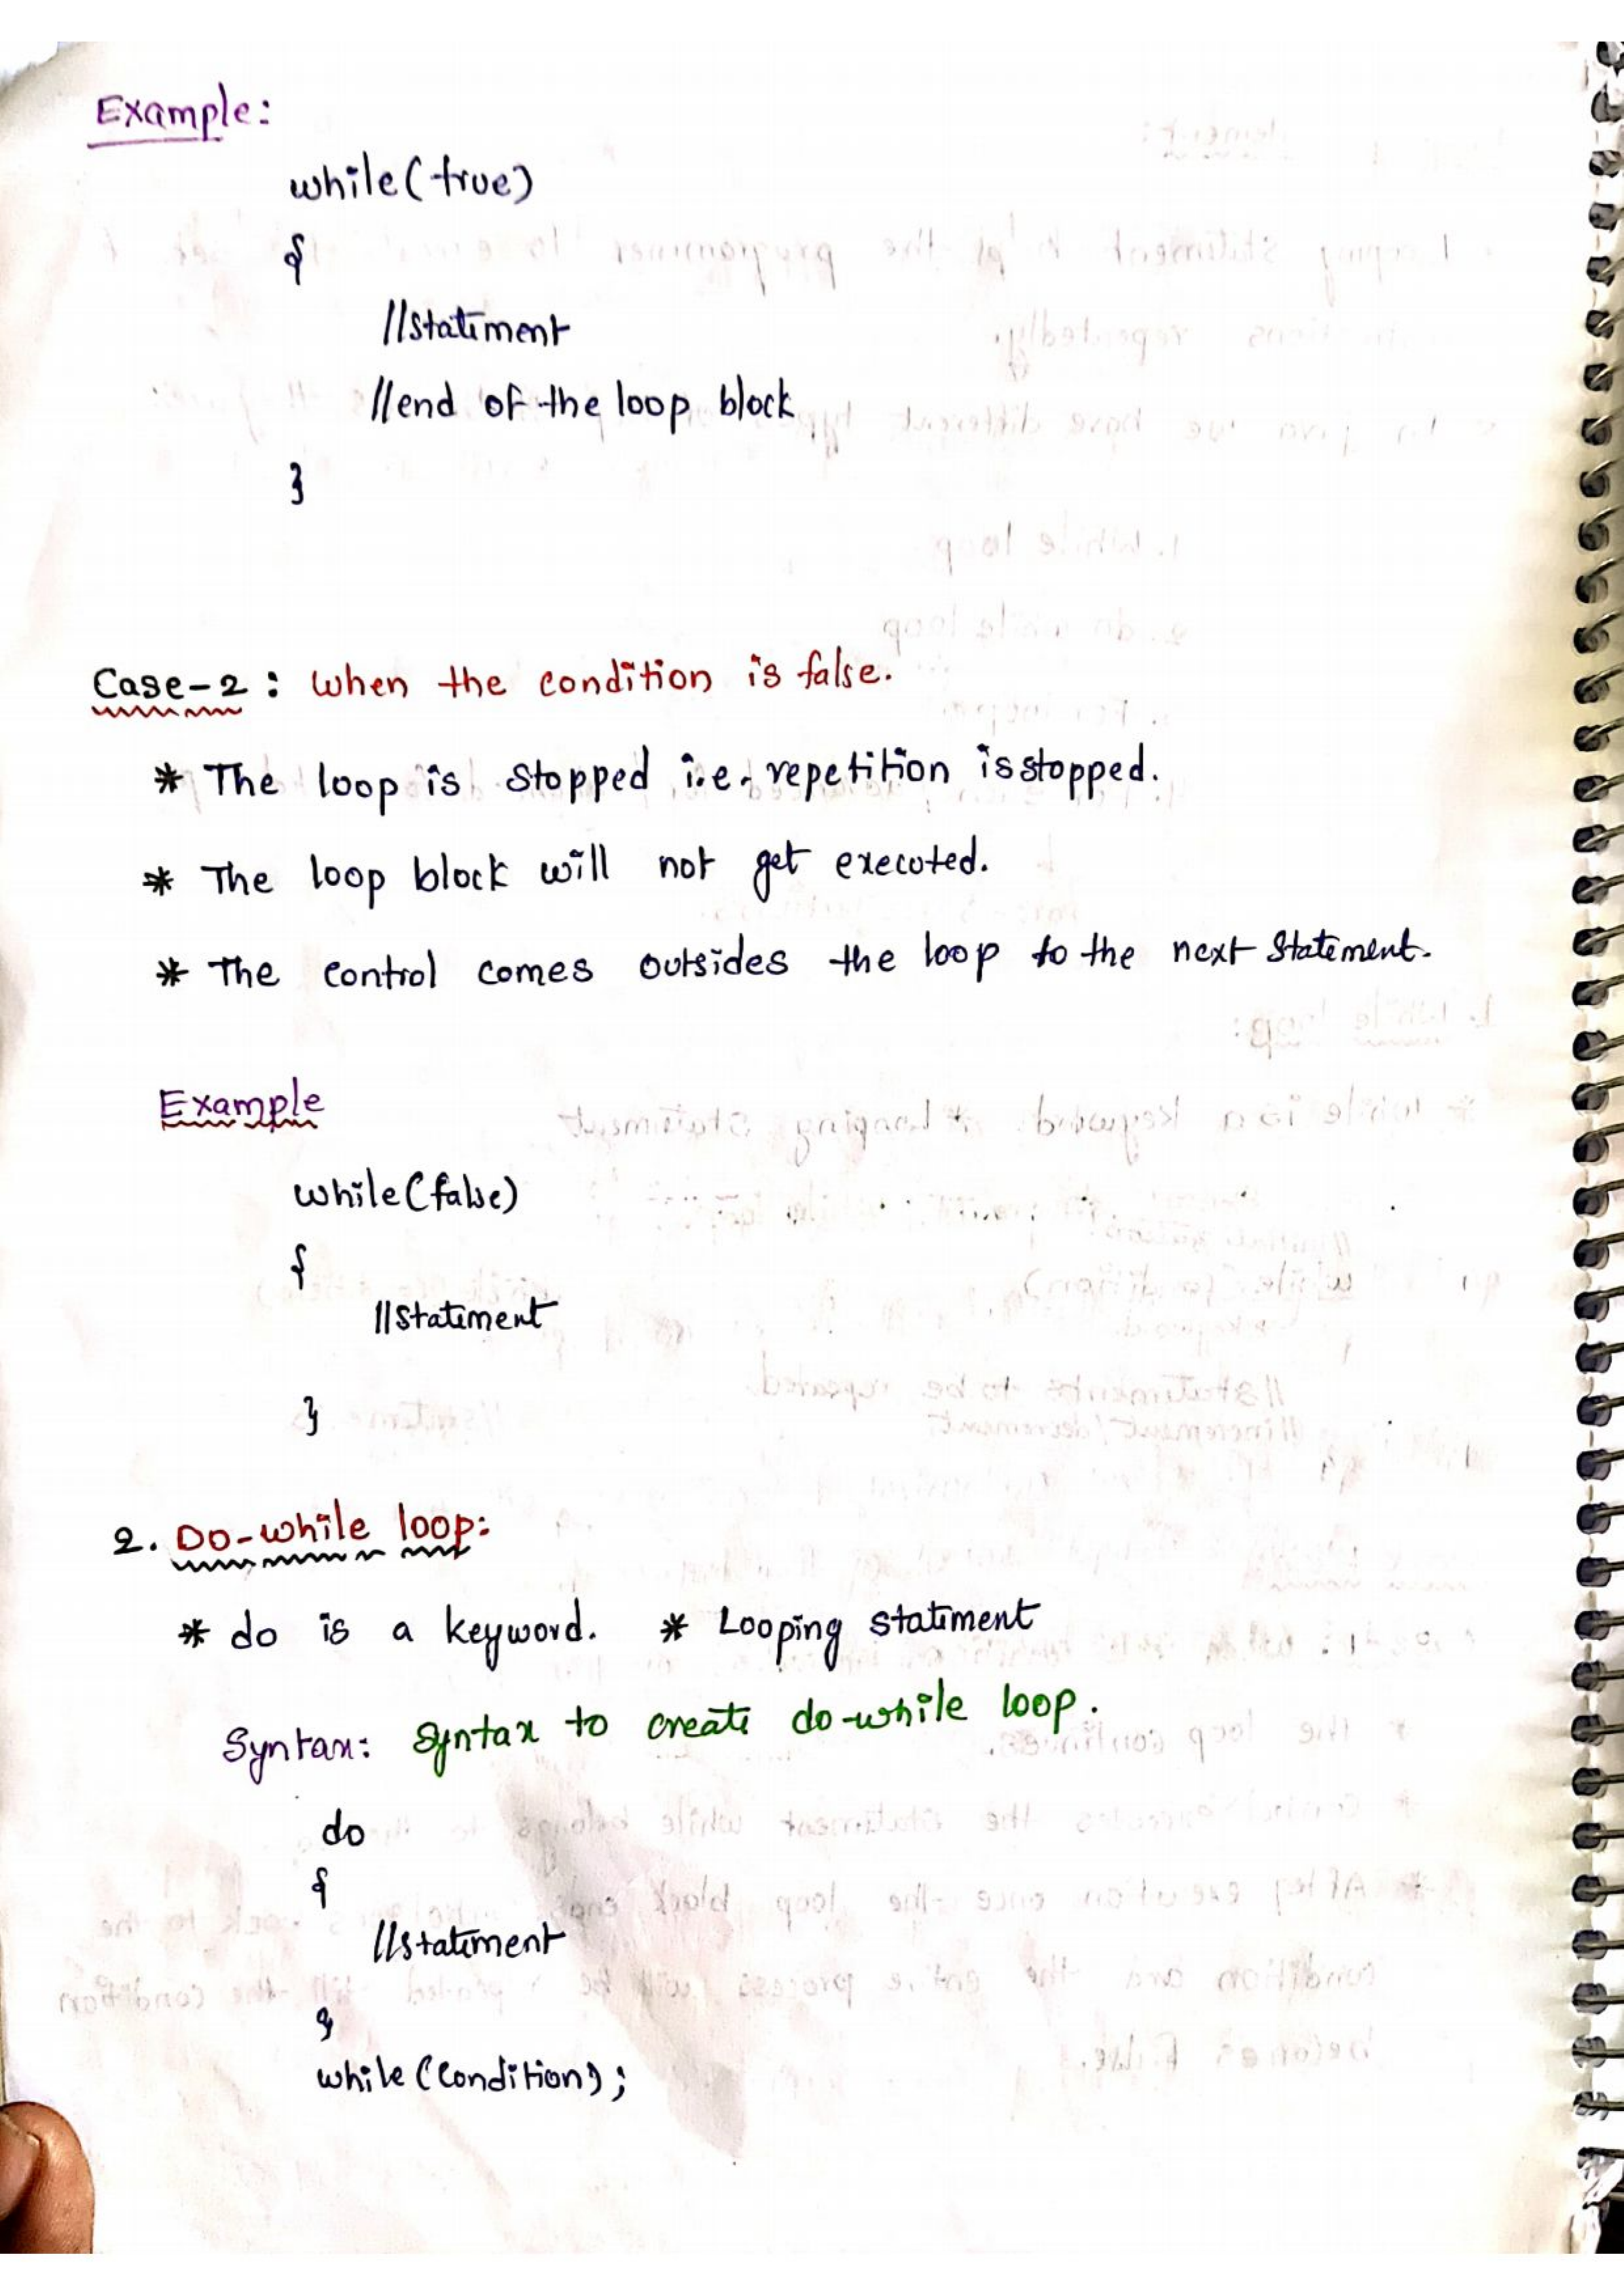 Example:
while(true)
{
//statement
//end of the loop block
}
Case-2 : when the condition is false.
* The loop is stopped i.e. repetition is stopped.
* The loop block will not get executed.
* The control comes outsides the loop to the next statement.
Example
while(false)
{
//statement
}
2. Do-while loop:
* do is a keyword. * Looping statement
Syntax: Syntax to create do-while loop.
do
{
//statement
}
while(condition);